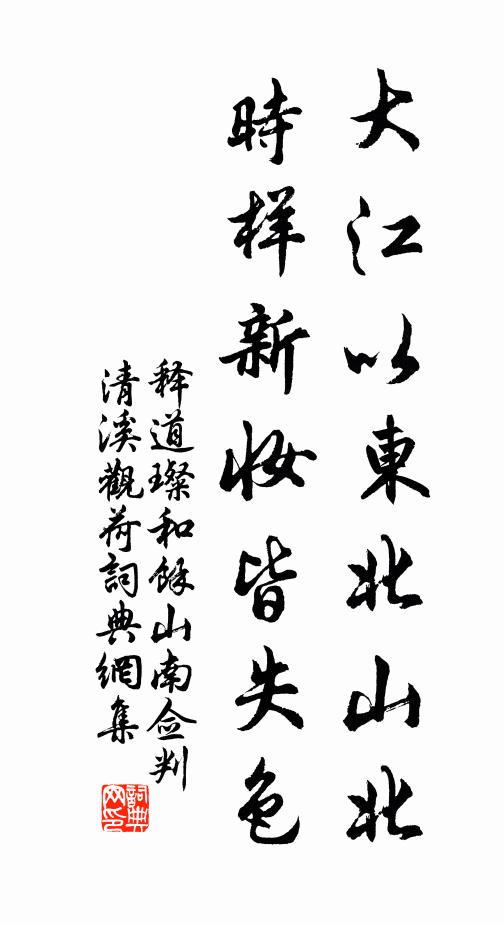 大江以東北山北
時樣新妝皆失色
释道璨和餘山南佥判
清溪觀荷詞典網集
詞典
网印